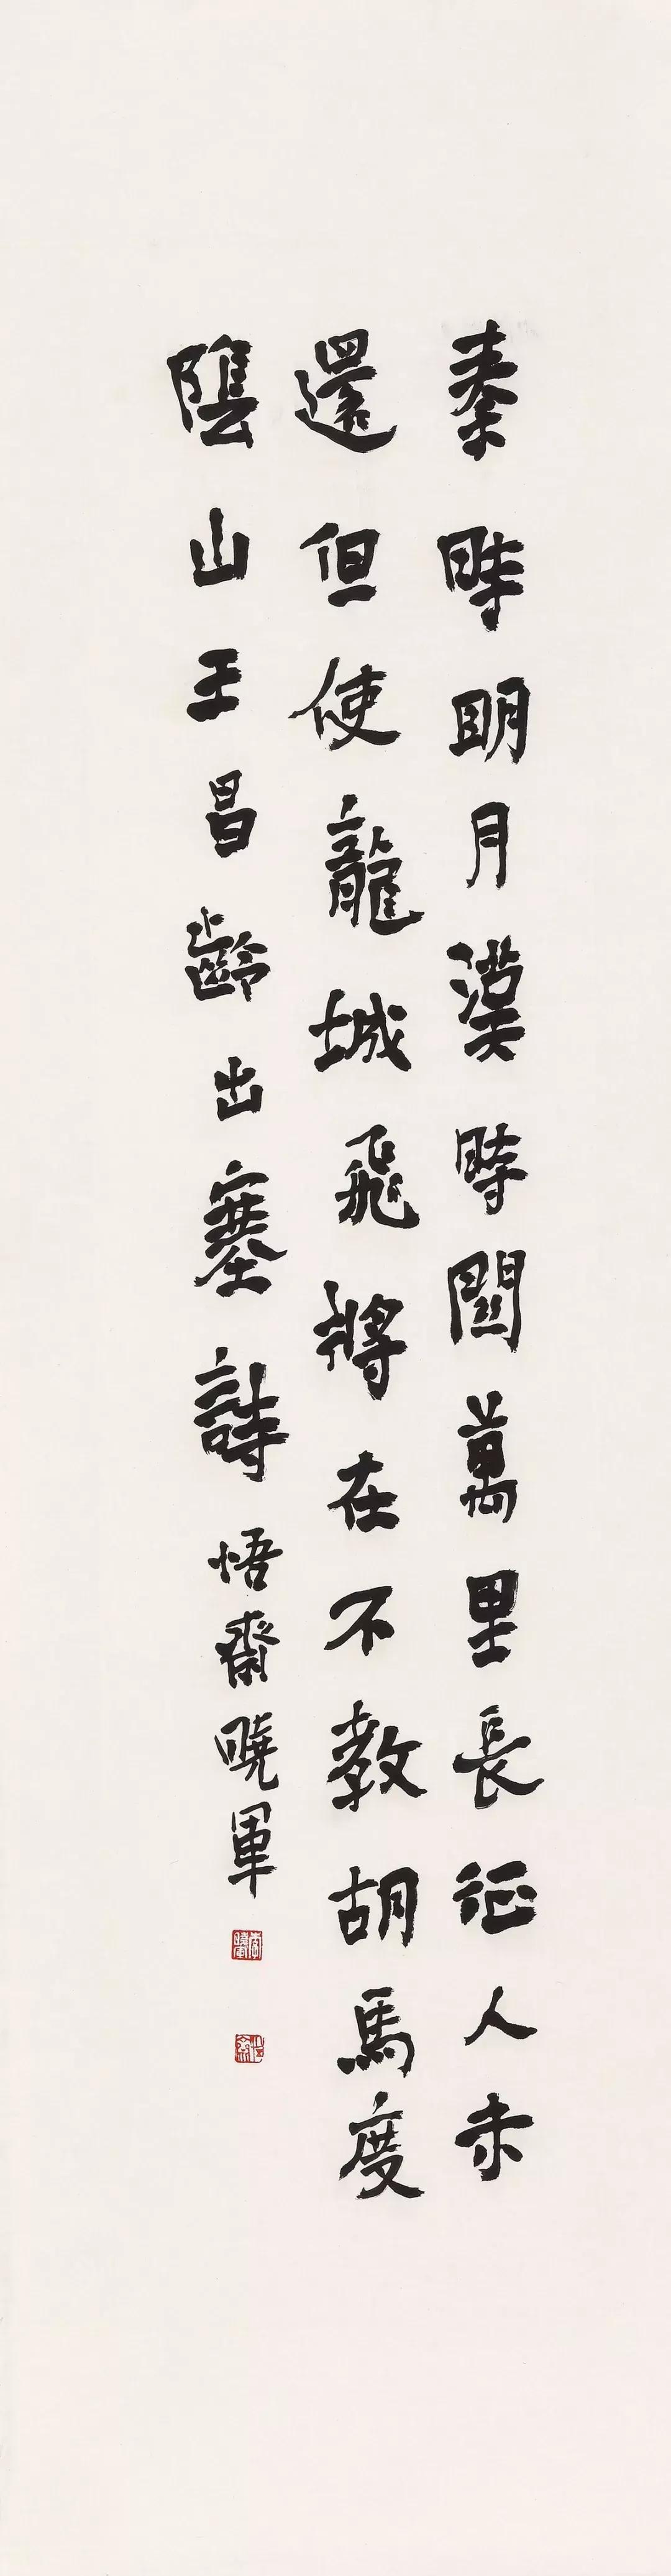 秦時明月漢時關萬里長征人未
還但使龍城飛將在不教胡馬度
陰山王昌齡出塞詩悟齋曉軍